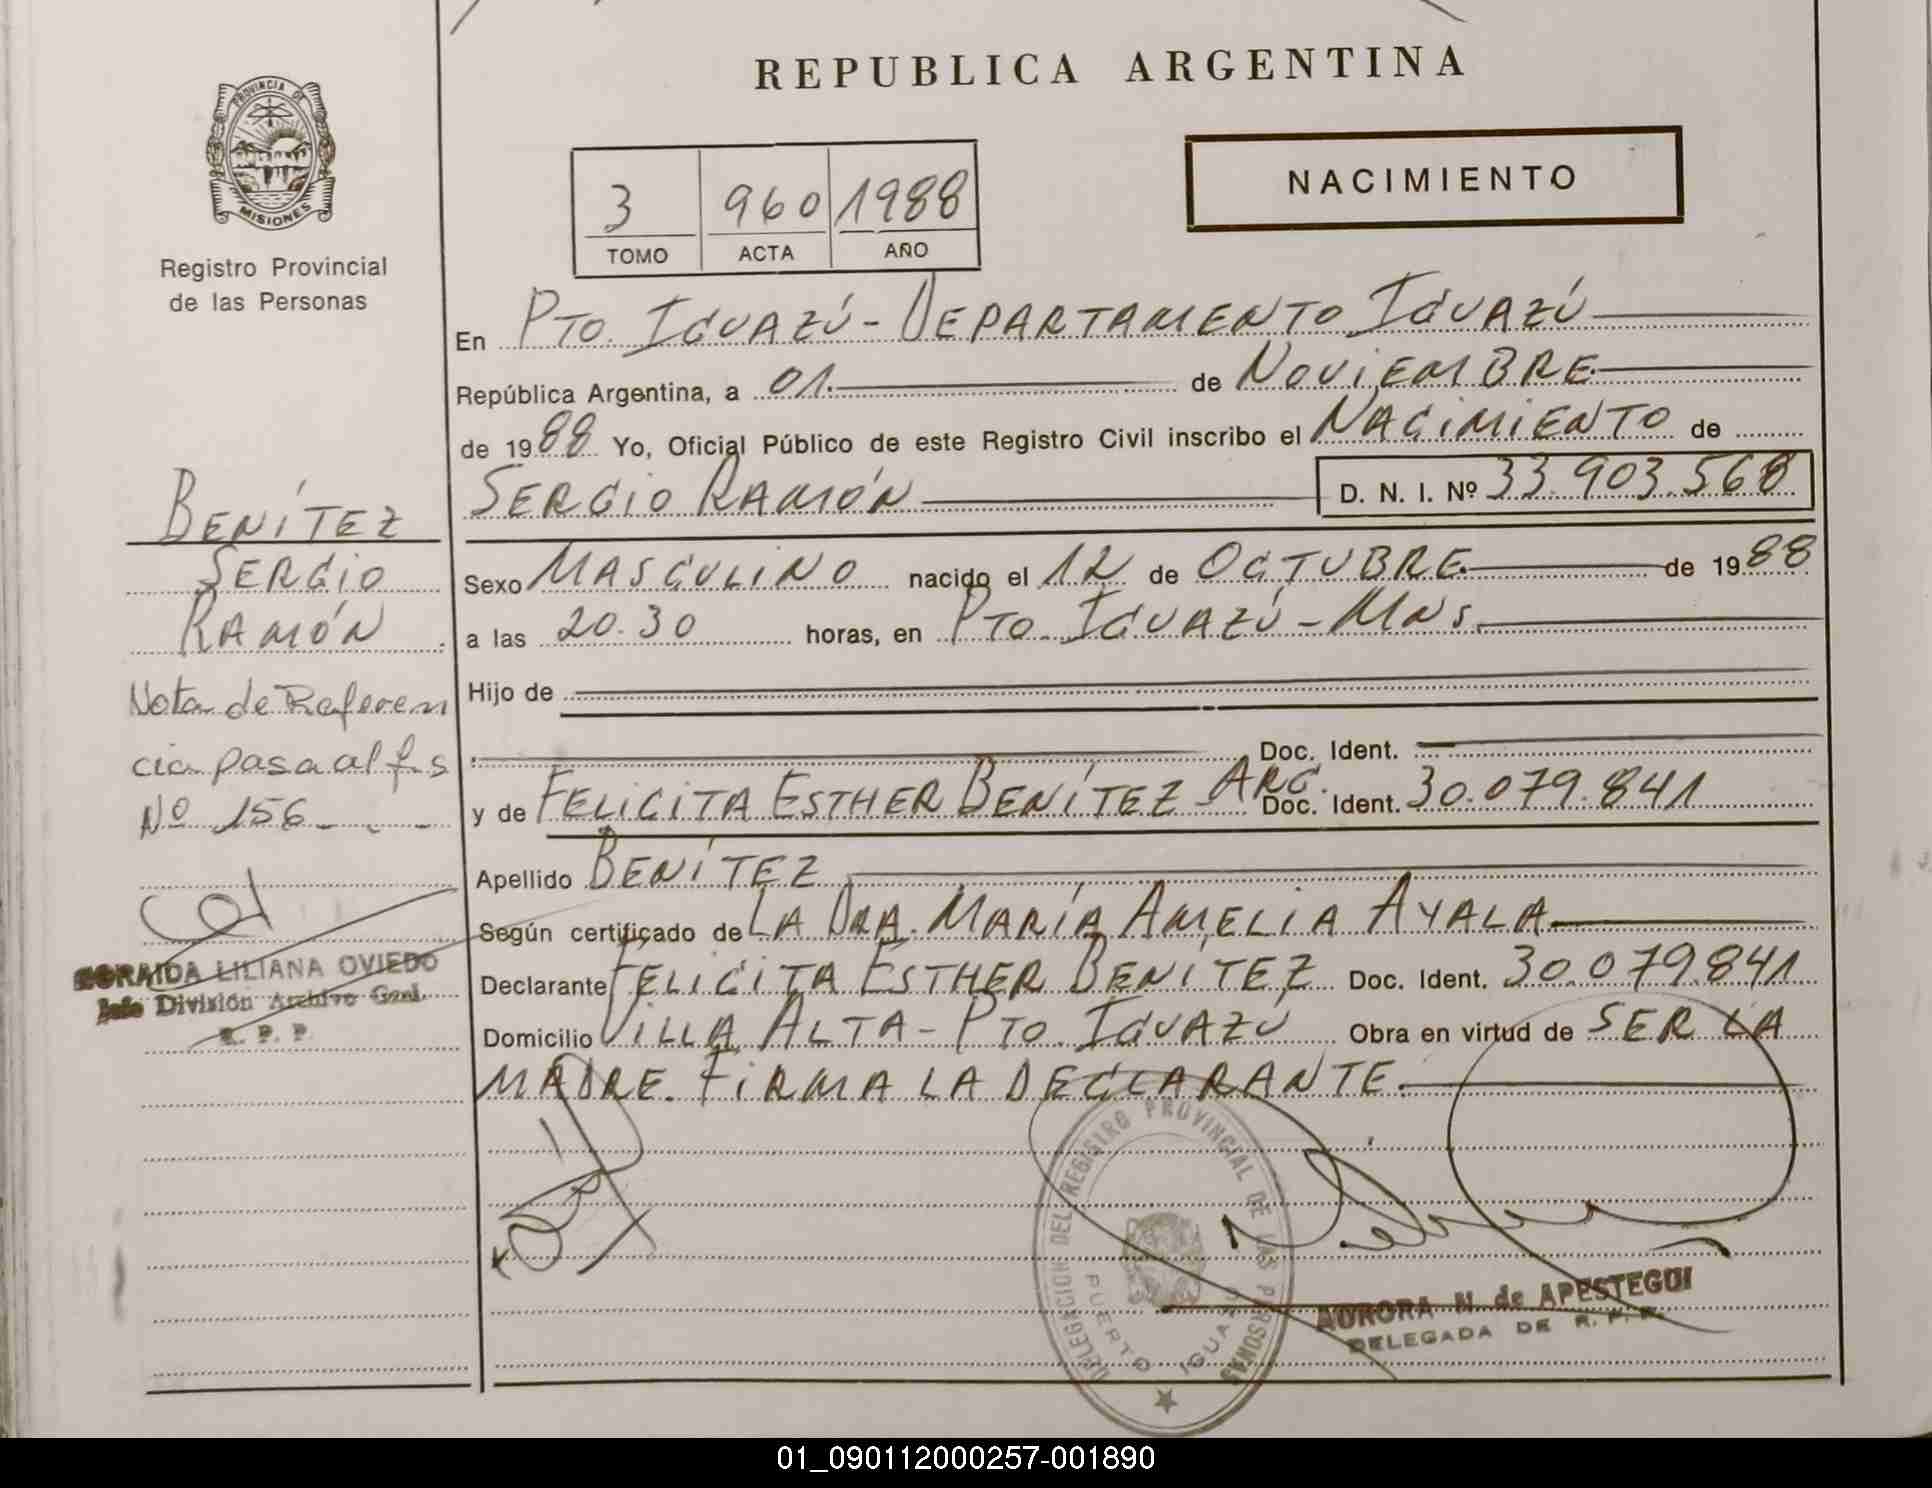 REPUBLICA ARGENTINA
PROVINCIA DE
MISIONES
Registro Provincial
de las Personas
3 960 1988
TOMO ACTA AÑO
NACIMIENTO
En PTO. IGUAZÚ - DEPARTAMENTO IGUAZÚ
República Argentina, a 01. de NOVIEMBRE
de 1988 Yo, Oficial Público de este Registro Civil inscribo el NACIMIENTO de
SERGIO RAMÓN D. N. I. Nº 33.903.568
Sexo MASCULINO nacido el 12 de OCTUBRE de 1988
a las 20.30 horas, en PTO. IGUAZÚ - MNS.
Hijo de
Doc. Ident.
y de FELICITA ESTHER BENÍTEZ ARG. Doc. Ident. 30.079.841
Apellido BENÍTEZ
Según certificado de LA DRA. MARÍA AMELIA AYALA
Declarante FELICITA ESTHER BENÍTEZ Doc. Ident. 30.079.841
Domicilio VILLA ALTA - PTO. IGUAZÚ Obra en virtud de SER LA
MADRE. FIRMA LA DECLARANTE.
BENÍTEZ
SERGIO
RAMÓN
Nota de Referen
cia pasa al fs
Nº 156
ZORAIDA LILIANA OVIEDO
Jefe División Archivo Gral.
R. P. P.
DELEGACION DEL REGISTRO PROVINCIAL DE LAS PERSONAS
PUERTO IGUAZU
AURORA N. de APESTEGUI
DELEGADA DE R. P. P.
01_090112000257-001890